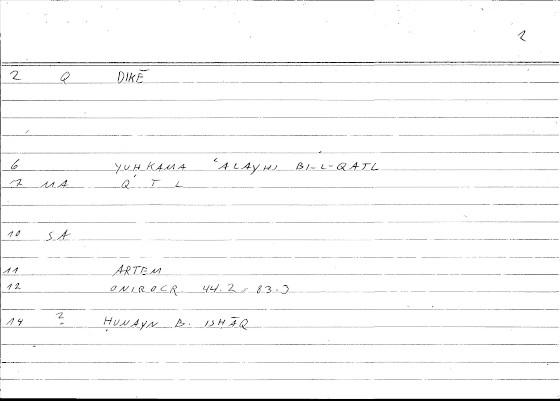 2
2 Q DIKĒ
6 YUḤKAMA ʿALAYHI BI-L-QATL
7 MA Q T L
10 SA
11 ARTEM
12 ONIROCR. 44.2 = 83.3
14 ? ḤUNAYN B. ISḤĀQ